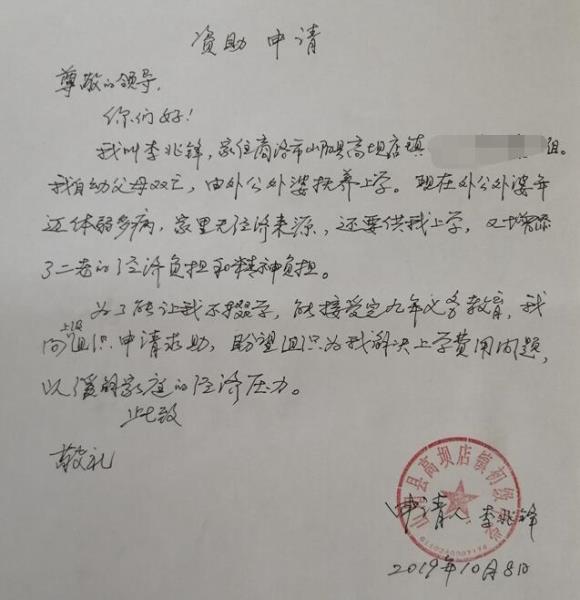 资助申请
尊敬的领导,
你们好!
我叫李兆锋,家住商洛市山阳县高坝店镇 组。
我自幼父母双亡,由外公外婆扶养上学。现在外公外婆年
迈体弱多病,家里无经济来源,还要供我上学,又增添
了二老的经济负担和精神负担。
为了能让我不掇学,能接受完九年义务教育,我
向上级组织申请求助,盼望组织为我解决上学费用问题,
以缓解家庭的经济压力。
此致
敬礼
山阳县高坝店镇初级
申请人 李兆锋
2019年10月8日